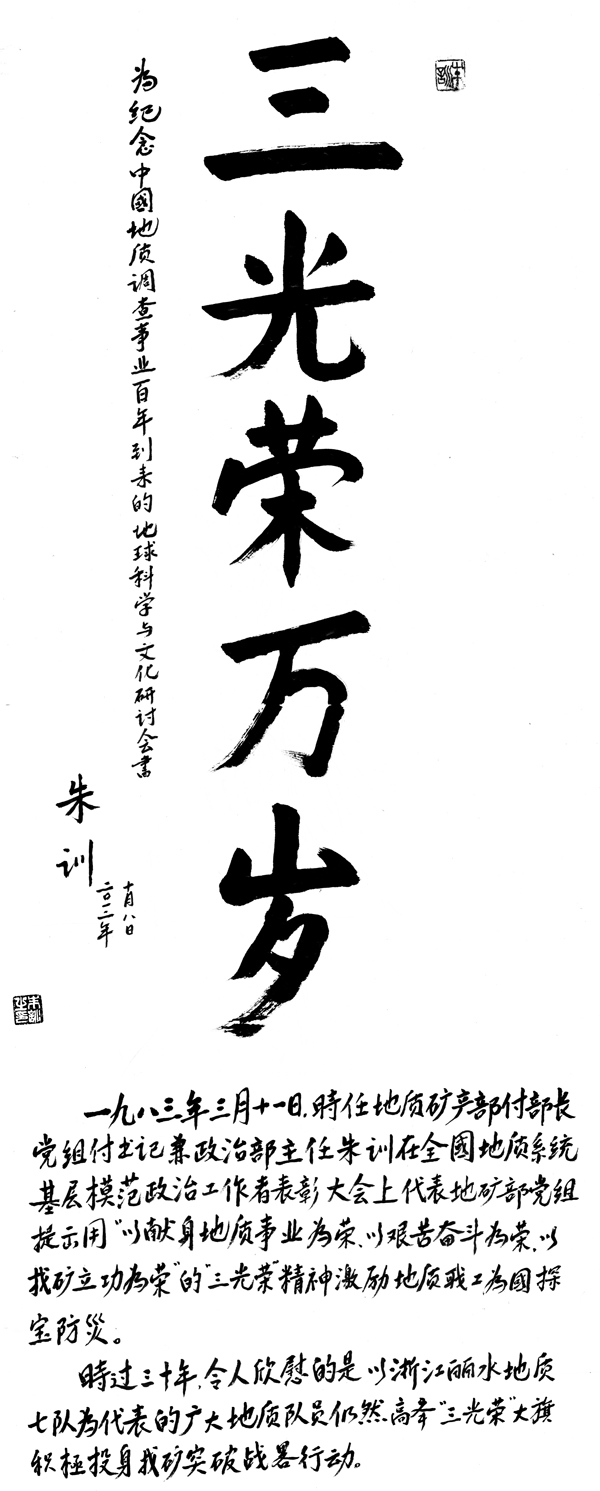 三光荣万岁
为纪念中國地质调查事业百年到来的地球科学与文化研讨会書
朱训
二〇一二年
十月八日
一九八三年三月十一日，時任地质矿产部付部长
党组付书记兼政治部主任朱训在全國地质系统
基层模范政治工作者表彰大会上代表地矿部党组
提示用“以献身地质事业为荣、以艰苦奋斗为荣、以
找矿立功为荣”的“三光荣”精神激励地质职工为國探
宝防災。
時过三十年，令人欣慰的是以浙江丽水地质
七队为代表的广大地质队员仍然高举“三光荣”大旗
积極投身找矿突破战畧行动。